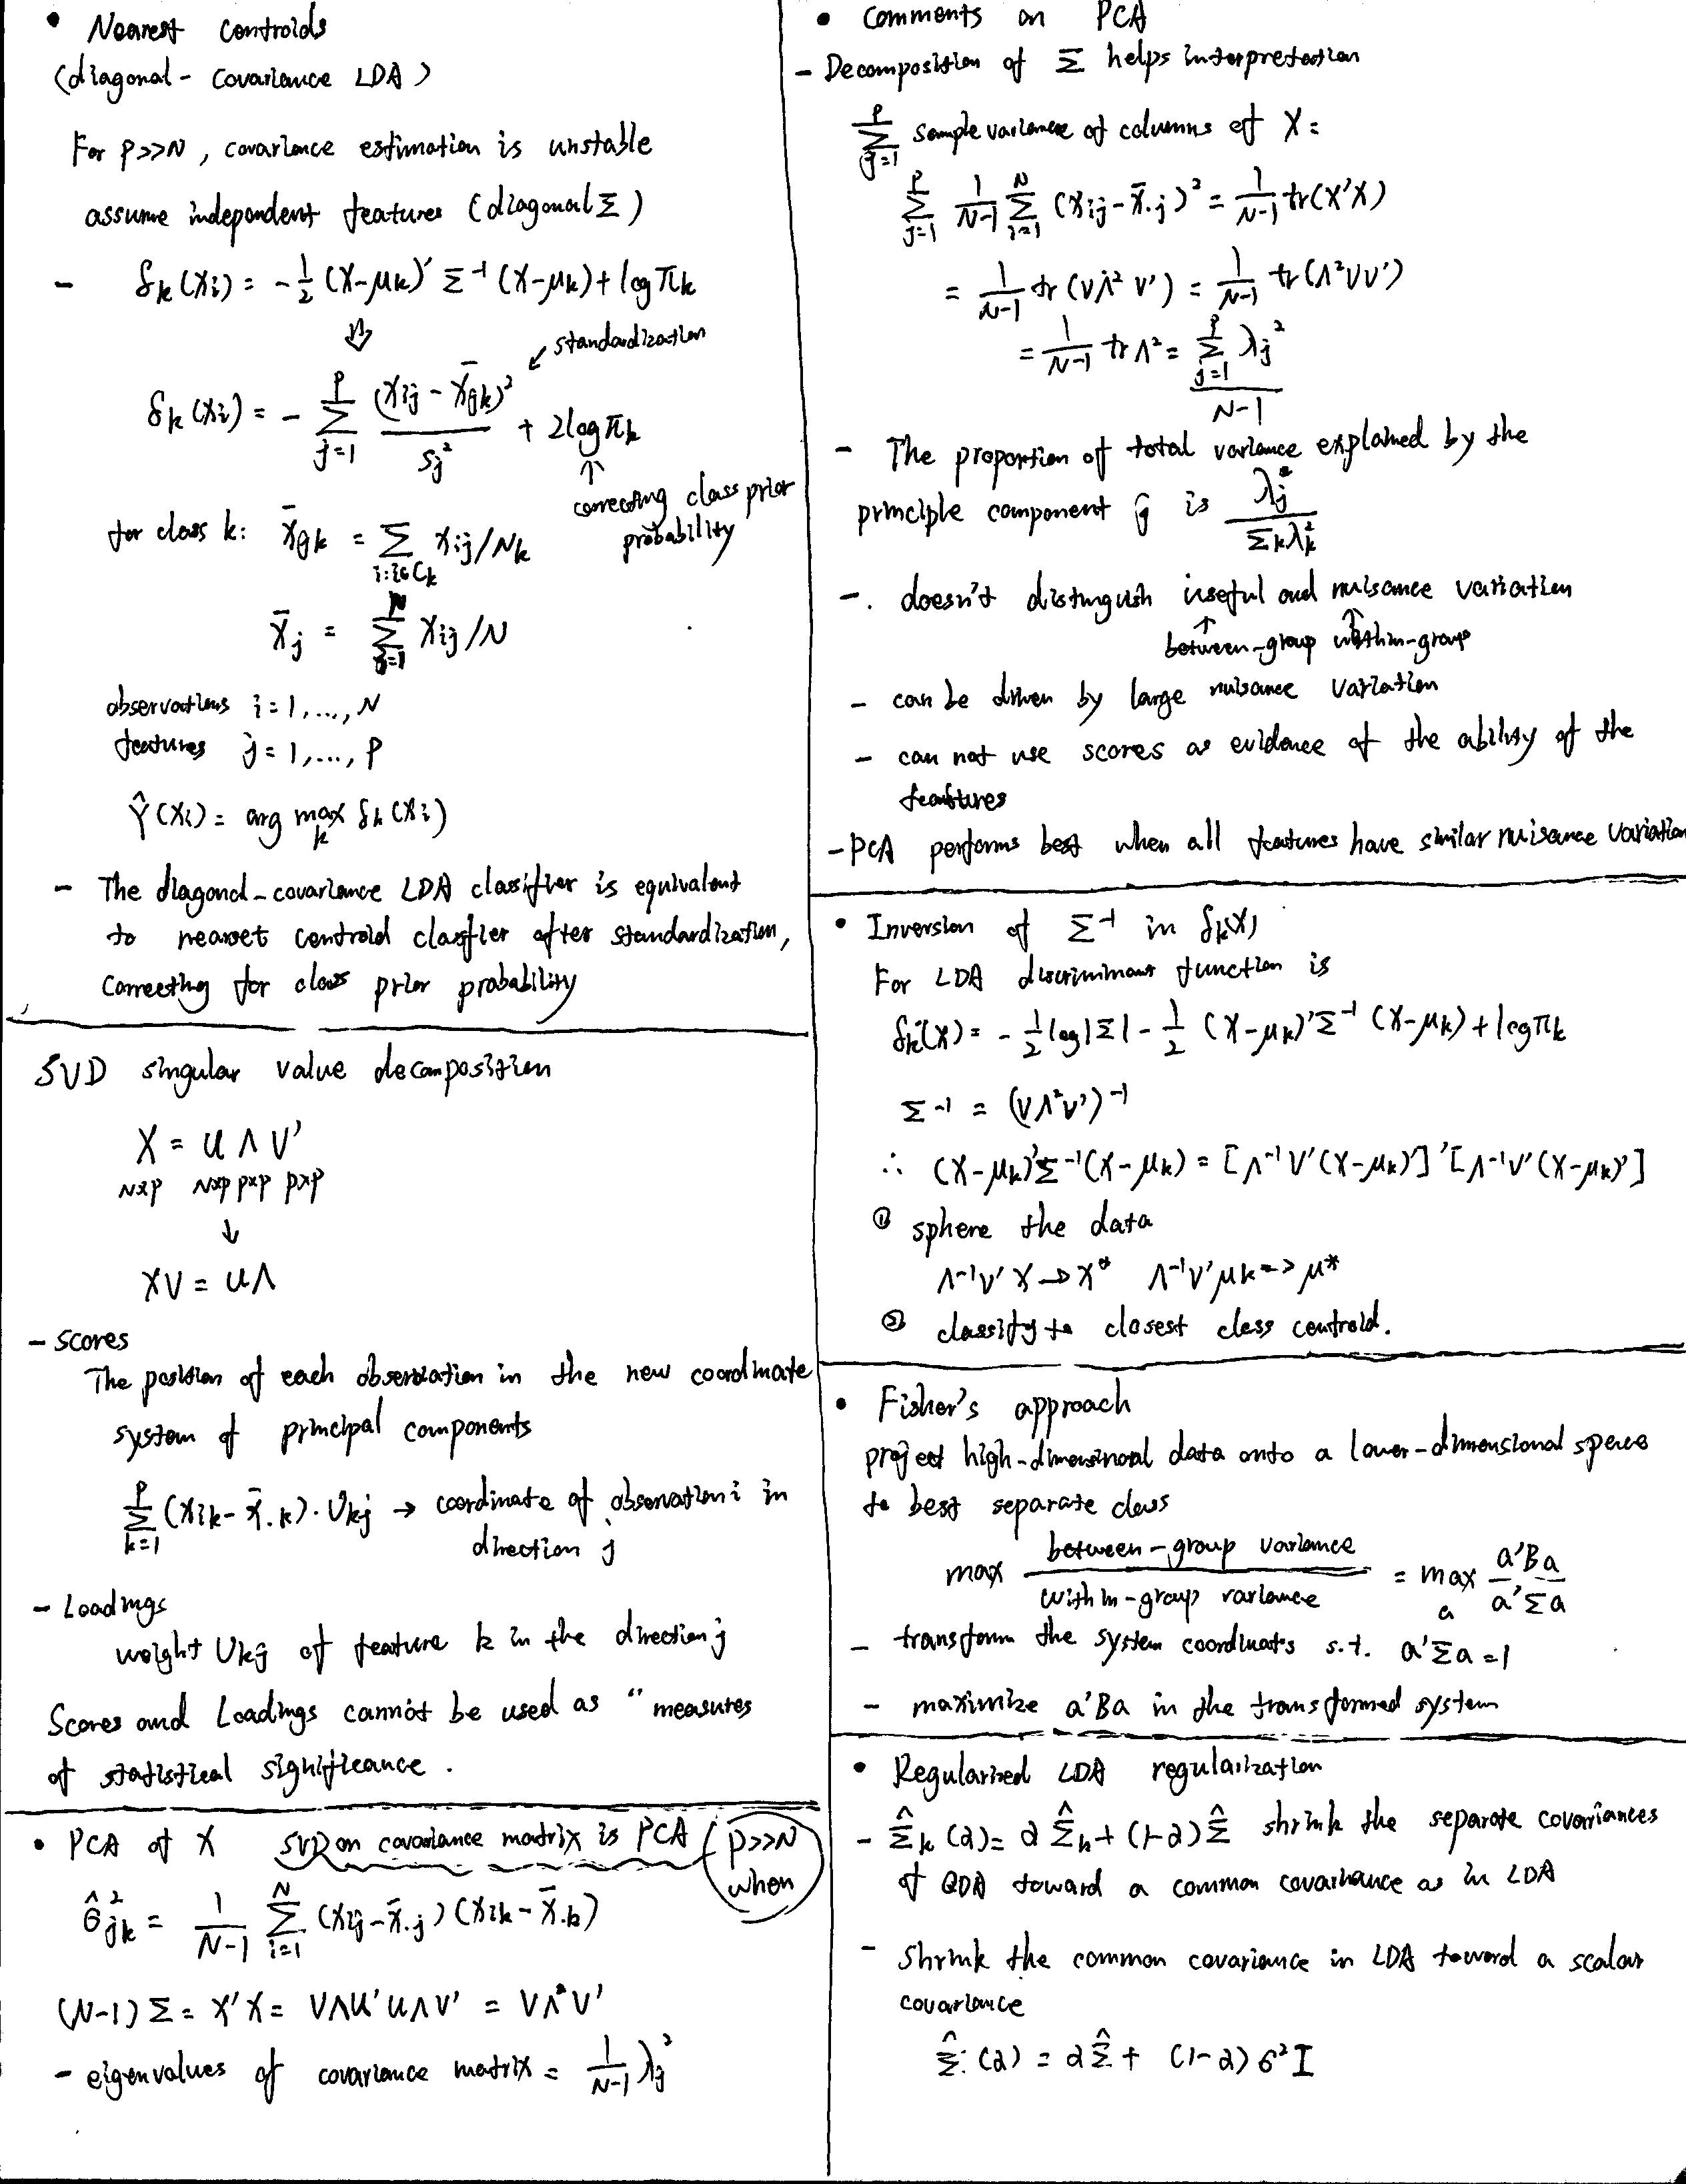 • Nearest Centroids
(diagonal - Covariance LDA)
For p>>N, covariance estimation is unstable
assume independent features (diagonal Σ)
- δk(xi) = -1/2 (X-μk)' Σ⁻¹ (X-μk) + log πk
⇓
↙ standardization
δk(xi) = - Σ_{j=1}^{p} (xij - x̄jk)² / sj² + 2 log πk
↑
correcting class prior
probability
for class k: x̄jk = Σ_{i:i∈Ck} xij/Nk
x̄j = Σ_{j=1}^{N} xij/N
observations i=1,...,N
features j=1,...,p
Ŷ(xi) = arg max_k δk(xi)
- The diagonal-covariance LDA classifier is equivalent
to nearest centroid classifier after standardization,
correcting for class prior probability
SVD singular value decomposition
X = U Λ V'
N×p N×p p×p p×p
↓
XV = UΛ
- Scores
The position of each observation in the new coordinate
system of principal components
Σ_{k=1}^{p} (xik - x̄.k)·Vkj → coordinate of observation i in
direction j
- Loadings
weight Vkj of feature k in the direction j
Scores and Loadings cannot be used as " measures
of statistical significance.
• PCA of X SVD on covariance matrix is PCA (p>>N
when
σ̂²jk = 1/(N-1) Σ_{i=1}^{N} (xij - x̄.j)(xik - x̄.k)
(N-1) Σ = X'X = VΛU'UΛV' = VΛ²V'
- eigenvalues of covariance matrix = 1/(N-1) λj²
• Comments on PCA
- Decomposition of Σ helps interpretation
Σ_{j=1}^{p} sample variance of columns of X =
Σ_{j=1}^{p} 1/(N-1) Σ_{i=1}^{N} (xij - x̄.j)² = 1/(N-1) tr(X'X)
= 1/(N-1) tr(VΛ²V') = 1/(N-1) tr(Λ²VV')
= 1/(N-1) tr Λ² = Σ_{j=1}^{p} λj² / N-1
- The proportion of total variance explained by the
principle component j is λj² / Σk λk²
-. doesn't distinguish useful and nuisance variation
↑ ↑
between-group within-group
- can be driven by large nuisance variation
- can not use scores as evidence of the ability of the
features
- PCA performs best when all features have similar nuisance variation
• Inversion of Σ⁻¹ in δk(x)
For LDA discriminant function is
δk(x) = -1/2 log|Σ| - 1/2 (X-μk)'Σ⁻¹(X-μk) + log πk
Σ⁻¹ = (VΛ²V')⁻¹
∴ (X-μk)'Σ⁻¹(X-μk) = [Λ⁻¹V'(X-μk)']'[Λ⁻¹V'(X-μk)']
① sphere the data
Λ⁻¹V'X → X* Λ⁻¹V'μk => μ*
② classify to closest class centroid.
• Fisher's approach
project high-dimensional data onto a lower-dimensional space
to best separate class
max between-group variance / within-group variance = max_a a'Ba / a'Σa
- transform the system coordinats s.t. a'Σa = 1
- maximize a'Ba in the transformed system
• Regularized LDA regularization
- Σ̂k(α) = αΣ̂k + (1-α)Σ̂ shrink the separate covariances
of QDA toward a common covariance as in LDA
- Shrink the common covariance in LDA toward a scalar
covariance
Σ̂(α) = αΣ̂ + (1-α)σ²I